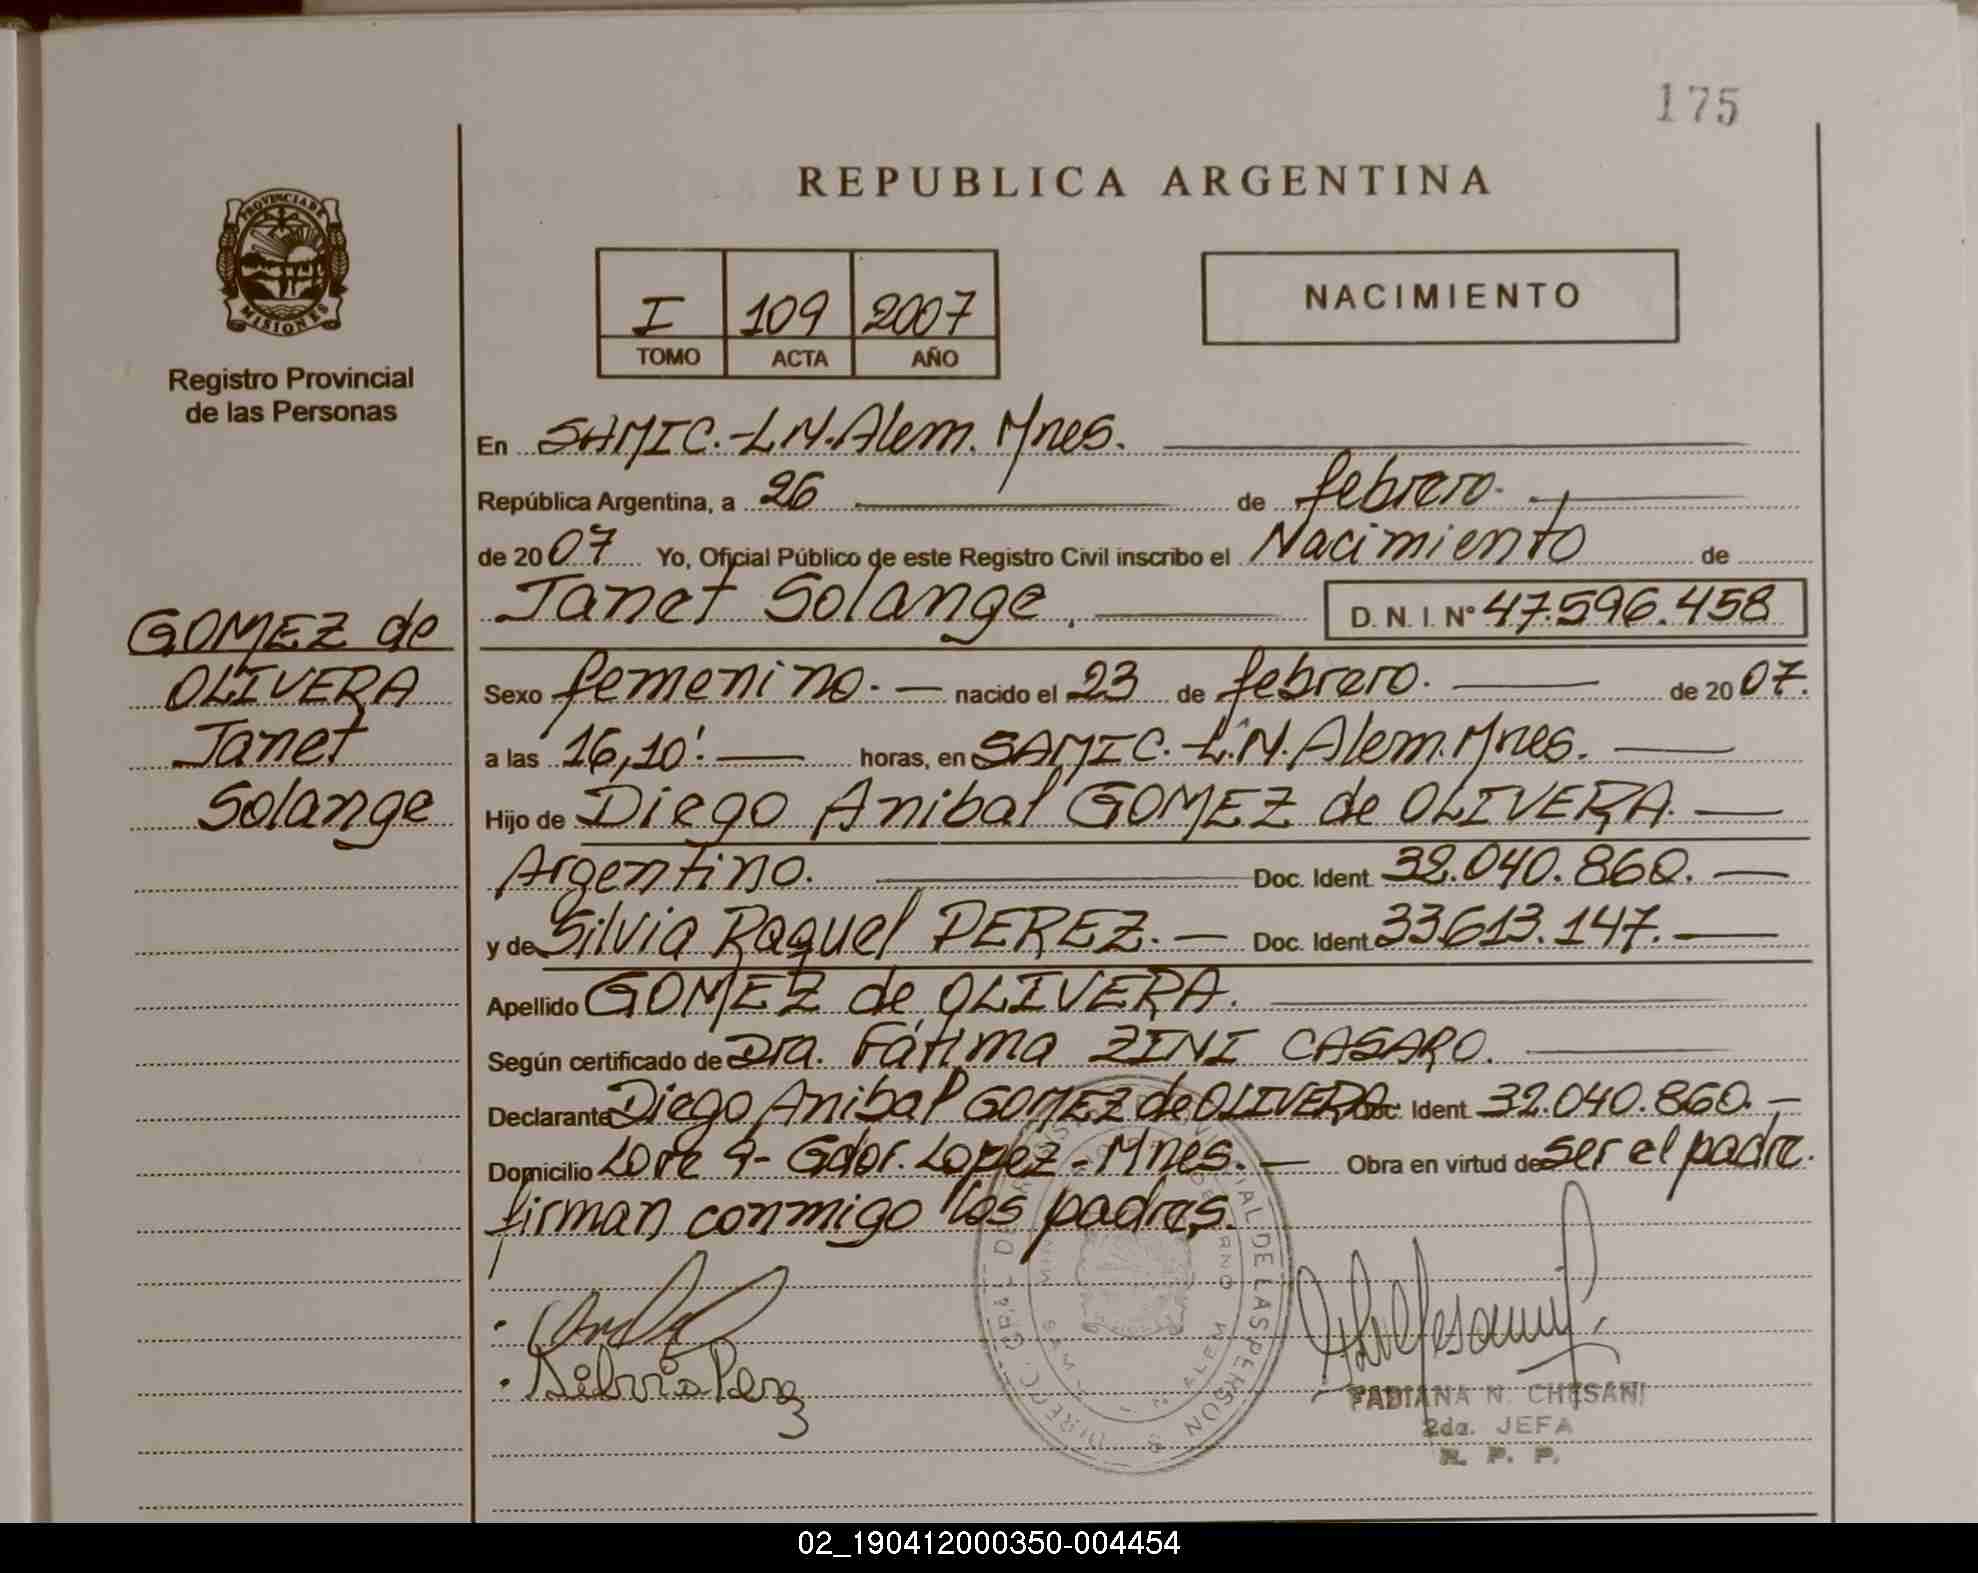 175
REPUBLICA ARGENTINA
PROVINCIA DE
MISIONES
Registro Provincial
de las Personas
I 109 2007
TOMO ACTA AÑO
NACIMIENTO
En SAMIC.-L.N.Alem. Mnes.
República Argentina, a 26 de febrero.
de 2007 Yo, Oficial Público de este Registro Civil inscribo el Nacimiento de
Janet Solange, D. N. I. Nº 47.596.458
GOMEZ de
OLIVERA
Janet
Solange
Sexo femenino. nacido el 23 de febrero. de 2007.
a las 16,10'. horas, en SAMIC.-L.N.Alem.Mnes.
Hijo de Diego Anibal GOMEZ de OLIVERA.
Argentino. Doc. Ident. 32.040.860.
y de Silvia Raquel PEREZ. Doc. Ident. 33.613.147.
Apellido GOMEZ de OLIVERA.
Según certificado de Dra. Fátima ZINI CASARO.
Declarante Diego Anibal GOMEZ de OLIVERA Doc. Ident. 32.040.860.
Domicilio Lote 9- Gdor. Lopez - Mnes. Obra en virtud de ser el padre.
firman conmigo los padres.
Silvia Perez
FABIANA N. CHESANI
2da. JEFA
R. P. P.
02_190412000350-004454